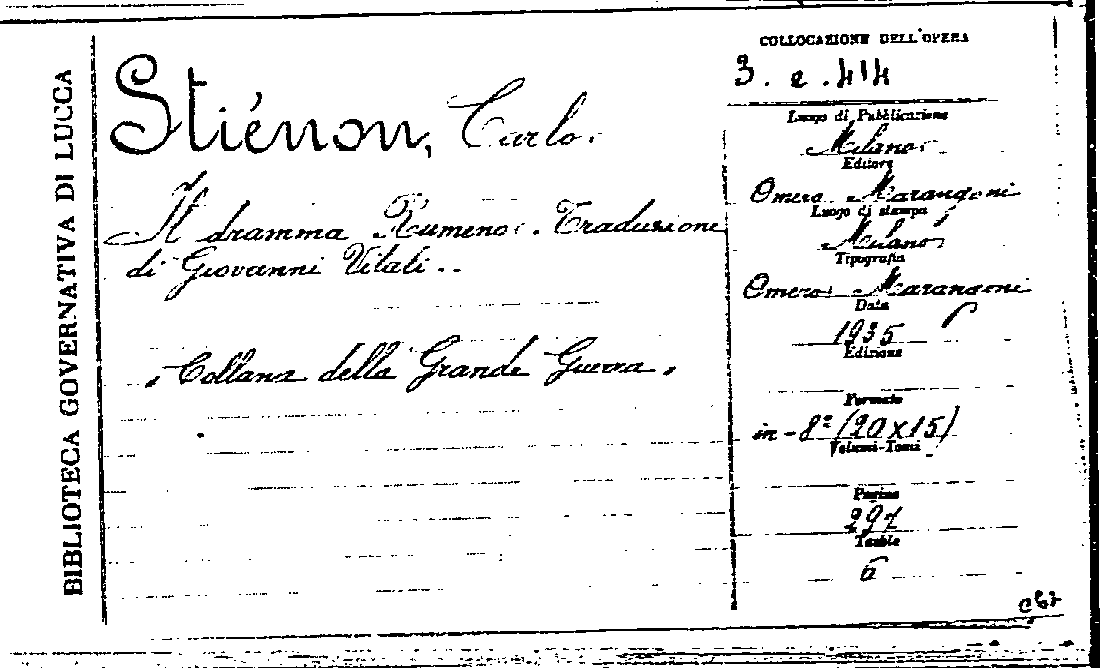 BIBLIOTECA GOVERNATIVA DI LUCCA
Stiénon, Carlo.
Il dramma Rumeno. Traduzione
di Giovanni Vitali..
"Collana della Grande Guerra"
COLLOCAZIONE DELL'OPERA
3. e. 414
Luogo di Pubblicazione
Milano
Editore
Omero Marangoni
Luogo di stampa
Milano
Tipografia
Omero Marangoni
Data
1935
Edizione
Formato
in-8° (20x15)
Volumi-Tomi
Pagine
297
Tavole
6